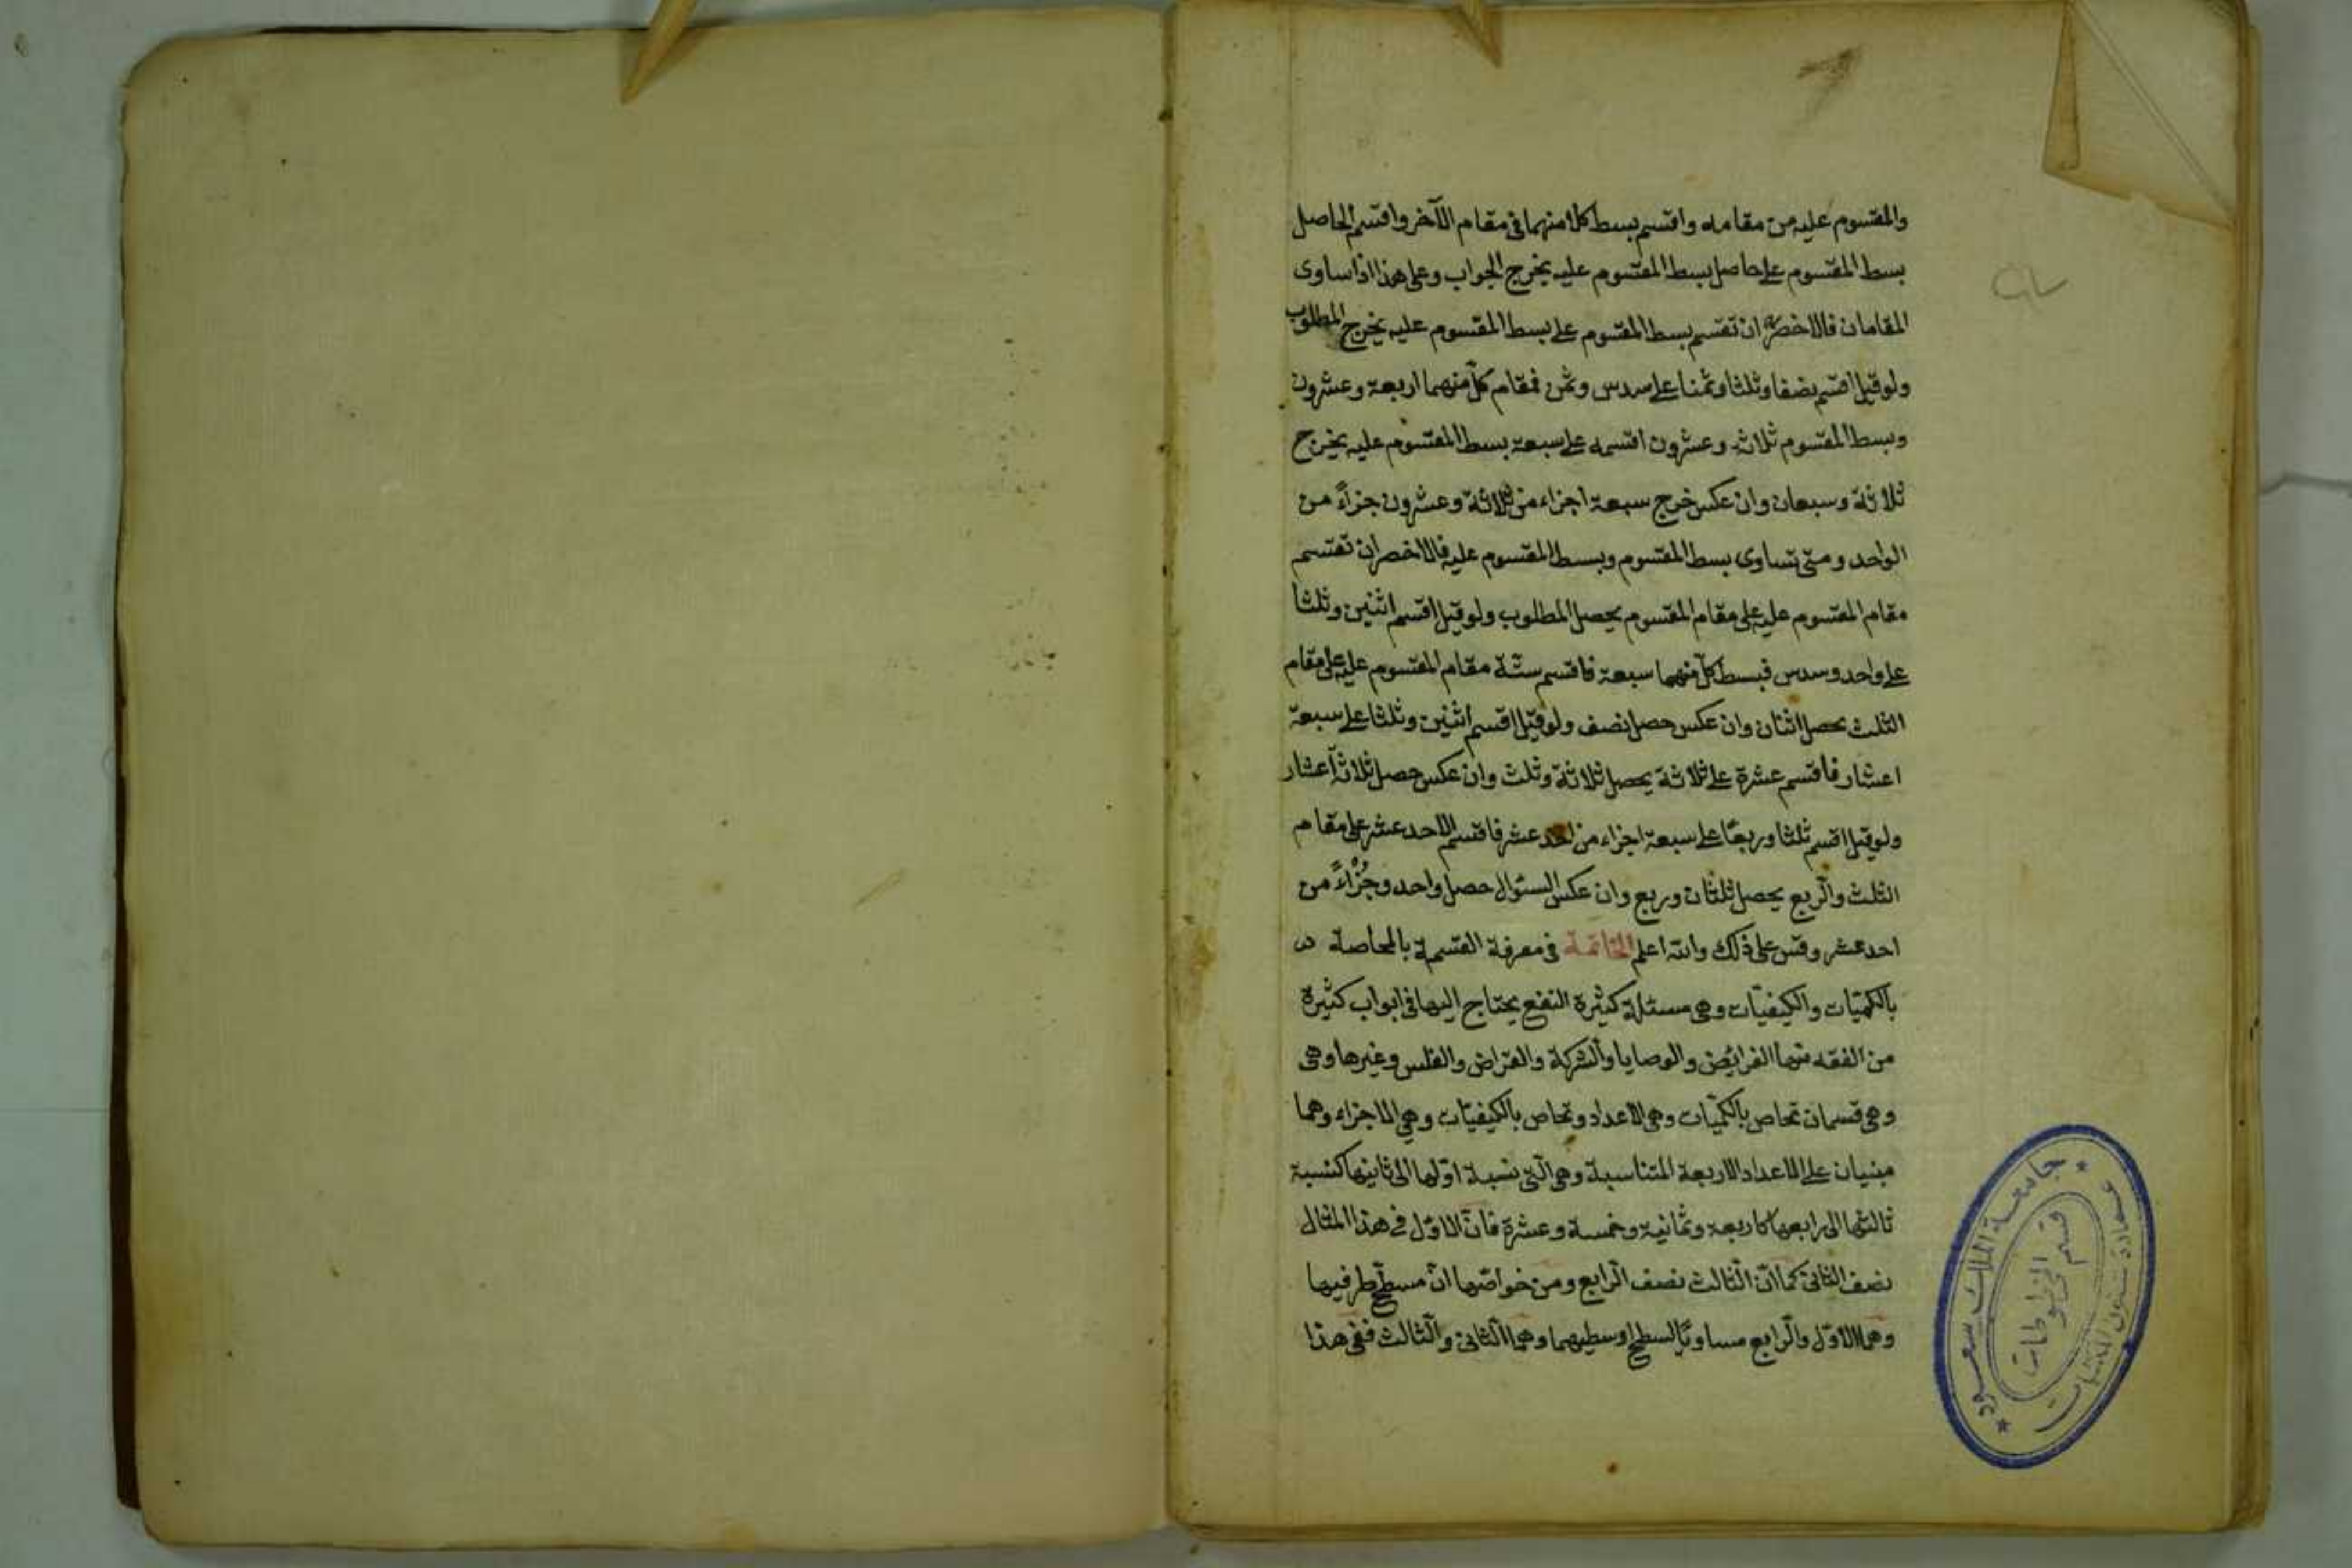 والمقسوم عليه من مقامه واقسم بسط كلا منهما فى مقام الآخر واقسم الحاصل
بسط المقسوم على حاصل بسط المقسوم عليه يخرج الجواب وعلى هذا اذا ساوى
المقامان فالاخصر ان تقسم بسط المقسوم على بسط المقسوم عليه يخرج المطلوب
ولو قيل اقسم نصفا وثلثا وثمنا على سدس وثمن فمقام كل منهما اربعة وعشرون
وبسط المقسوم ثلاثة وعشرون اقسمه على سبعة بسط المقسوم عليه يخرج
ثلاثة وسبعان وان عكس خرج سبعة اجزاء من ثلاثة وعشرون جزاءً من
الواحد ومتى تساوى بسط المقسوم وبسط المقسوم عليه فالاخصر ان تقسم
مقام المقسوم عليه على مقام المقسوم يحصل المطلوب ولو قيل اقسم اثنين وثلثا
على واحد وسدس فبسط كل منهما سبعة فاقسم ستة مقام المقسوم عليه على مقام
الثلث يحصل اثنان وان عكس حصل نصف ولو قيل اقسم اثنين وثلثا على سبعة
اعشار فاقسم عشرة على ثلاثة يحصل ثلاثة وثلث وان عكس حصل ثلاثة اعشار
ولو قيل اقسم ثلثا وربعًا على سبعة اجزاء من احد عشر فاقسم الاحد عشر على مقام
الثلث والرّبع يحصل ثلثان وربع وان عكس السئوال حصل واحد وجُزْاءً من
احد عشر وقس على ذلك والله اعلم الخاتمة فى معرفة القسمة بالمحاصة
بالكميّات والكيفيّات وهى مسئلة كثيرة النفع يحتاج اليها فى ابواب كثيرة
من الفقه منها الفرائض والوصايا والشركة والقراض والفلس وغيرها وهى
وهى قسمان تحاص بالكميّات وهى الاعداد وتحاص بالكيفيّات وهى الاجزاء وهما
مبنيان على الاعداد الاربعة المتناسبة وهى الّتى نسبة اوّلها الى ثانيها كنسبة
ثالثها الى رابعها كاربعة وثمانية وخمسة وعشرة فانّ الاوّل فى هذا المثال
نصف الثانى كما انّ الثّالث نصف الرّابع ومن خواصّها انّ مسطّح طرفيها
وهما الاوّل والرّابع مساويًا لسطح اوسطيهما وهما الثّانى والثّالث ففى هذا
جامعة الملك سعود
قسم المخطوطات
عمادة شؤون المكتبات